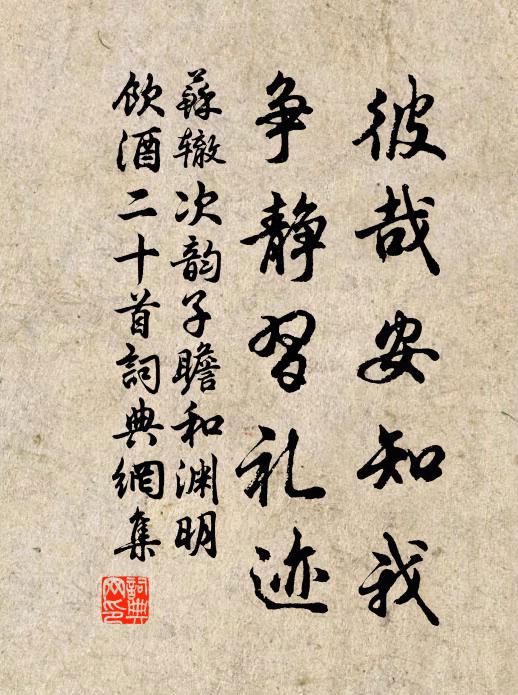 彼哉安知我
争静习礼迹
蘇辙次韵子瞻和渊明
飲酒二十首詞典網集
詞典
网印